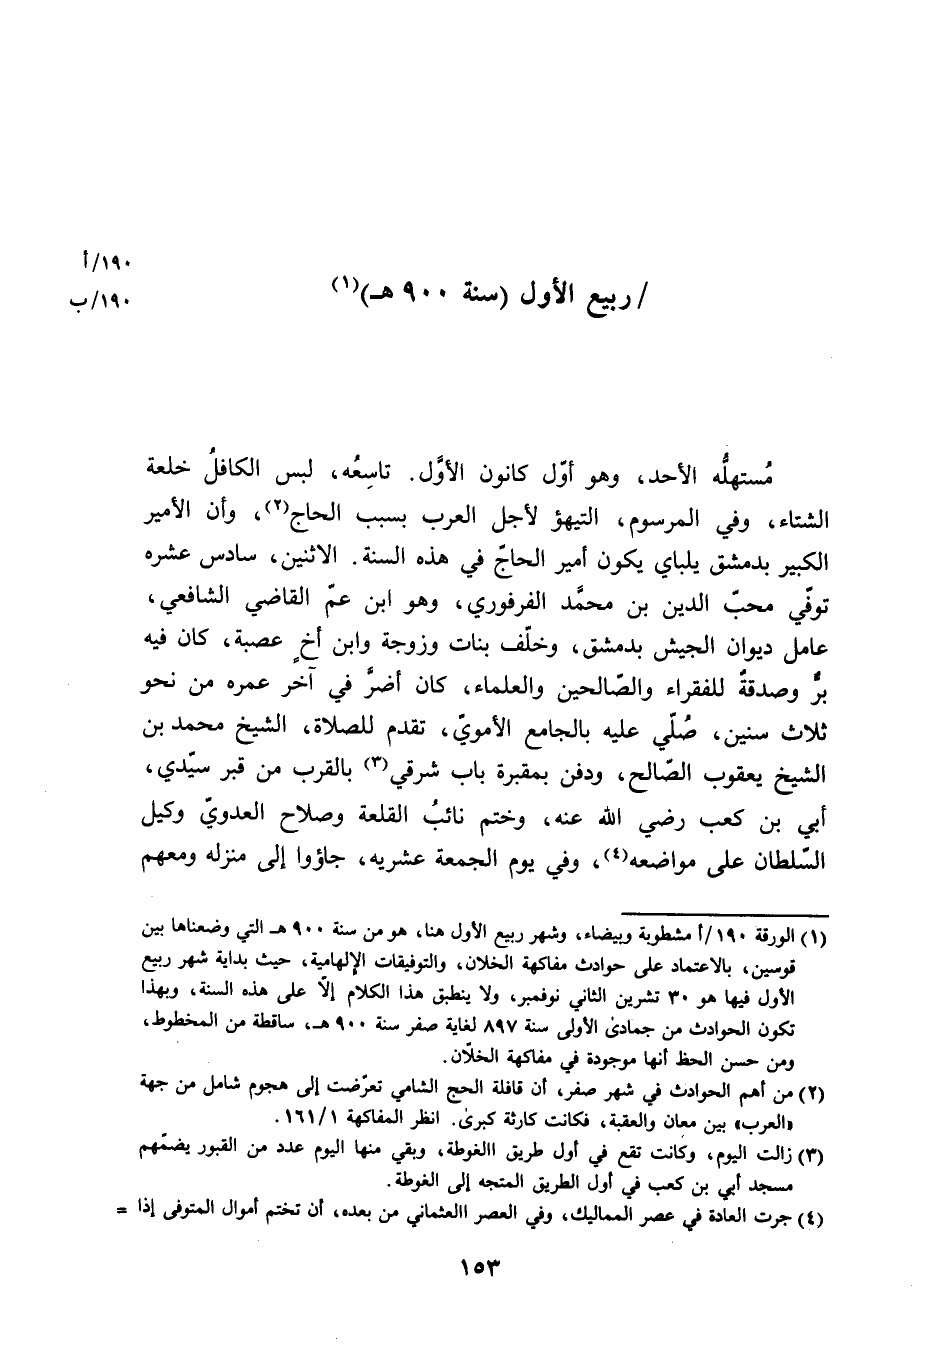 ١٩٠/أ
/ ربيع الأول (سنة ٩٠٠ هـ)(١)
١٩٠/ب
مُستهلُّه الأحد، وهو أوّل كانون الأوَّل. تاسِعُه، لبس الكافلُ خلعة
الشتاء، وفي المرسوم، التيهؤ لأجل العرب بسبب الحاج(٢)، وأن الأمير
الكبير بدمشق يلباي يكون أمير الحاجّ في هذه السنة. الاثنين، سادس عشره
توفّي محبّ الدين بن محمَّد الفرفوري، وهو ابن عمّ القاضي الشافعي،
عامل ديوان الجيش بدمشق، وخلّف بنات وزوجة وابن أخٍ عصبة، كان فيه
برٌّ وصدقةٌ للفقراء والصّالحين والعلماء، كان أضرَّ في آخر عمره من نحو
ثلاث سنين، صُلّي عليه بالجامع الأمويّ، تقدم للصلاة، الشيخ محمد بن
الشيخ يعقوب الصّالح، ودفن بمقبرة باب شرقي(٣) بالقرب من قبر سيّدي،
أبي بن كعب رضي الله عنه، وختم نائبُ القلعة وصلاح العدويّ وكيل
السّلطان على مواضعه(٤)، وفي يوم الجمعة عشريه، جاؤوا إلى منزله ومعهم
(١) الورقة ١٩٠/أ مشطوبة وبيضاء، وشهر ربيع الأول هنا، هو من سنة ٩٠٠ هـ التي وضعناها بين
قوسين، بالاعتماد على حوادث مفاكهة الخلان، والتوفيقات الإلهامية، حيث بداية شهر ربيع
الأول فيها هو ٣٠ تشرين الثاني نوفمبر، ولا ينطبق هذا الكلام إلّا على هذه السنة، وبهذا
تكون الحوادث من جمادىٰ الأولى سنة ٨٩٧ لغاية صفر سنة ٩٠٠ هـ، ساقطة من المخطوط،
ومن حسن الحظ أنها موجودة في مفاكهة الخلّان.
(٢) من أهم الحوادث في شهر صفر، أن قافلة الحج الشامي تعرّضت إلى هجوم شامل من جهة
«العرب» بين معان والعقبة، فكانت كارثة كبرىٰ. انظر المفاكهة ١/١٦١.
(٣) زالت اليوم، وكانت تقع في أول طريق االغوطة، وبقي منها اليوم عدد من القبور يضمّهم
مسجد أبي بن كعب في أول الطريق المتجه إلى الغوطة.
(٤) جرت العادة في عصر المماليك، وفي العصر االعثماني من بعده، أن تختم أموال المتوفى إذا =
١٥٣